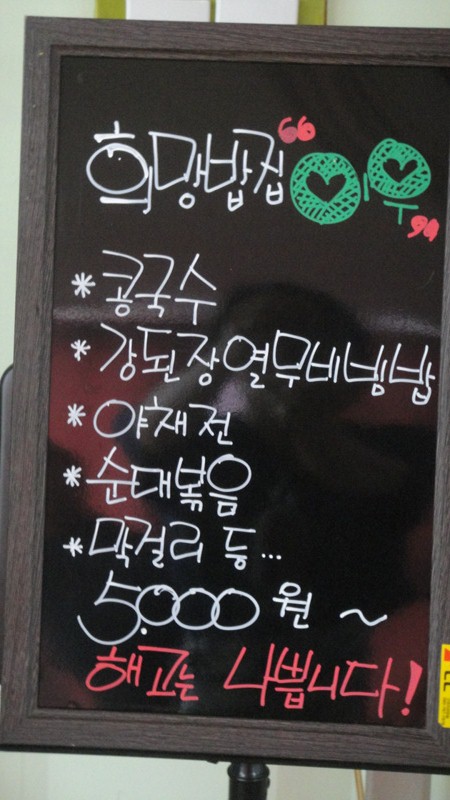 희망밥집 “이우”
* 콩국수
* 강된장열무비빔밥
* 야채전
* 순대볶음
* 막걸리 등...
5.000원 ~
해고는 나쁩니다!